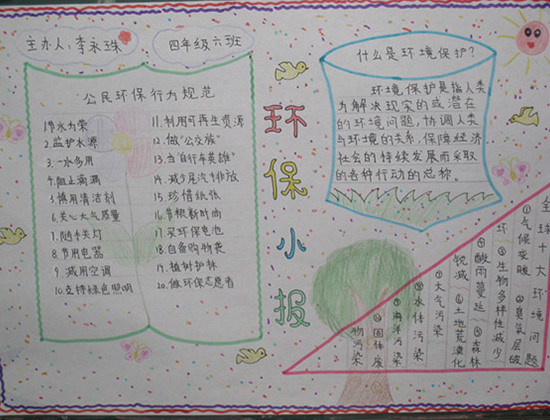 主办人:李永珠
四年级六班
公民环保行为规范
1.节水为荣
2.监护水源
3.一水多用
4.阻止滴漏
5.慎用清洁剂
6.关心大气质量
7.随手关灯
8.节用电器
9.减用空调
10.支持绿色照明
11.利用可再生资源
12.做“公交族”
13.当“自行车英雄”
14.减少尾汽排放
15.珍惜纸张
16.
17.买环保电池
18.自备购物袋
19.植树护林
20.做环保志愿者
环保小报
什么是环境保护?
环境保护是指人类
为解决现实的或潜在
的环境问题,协调人类
与环境的关系,保障经济
社会的持续发展而采取
的各种行动的总称。
全球十大环境问题
①气候变暖
②臭氧层破
环
③生物多样性减少
④酸雨蔓延
⑤森林
锐减
⑥土地荒漠化
⑦大气污染
⑧水体污染
⑨海洋污染
⑩固体废
物污染